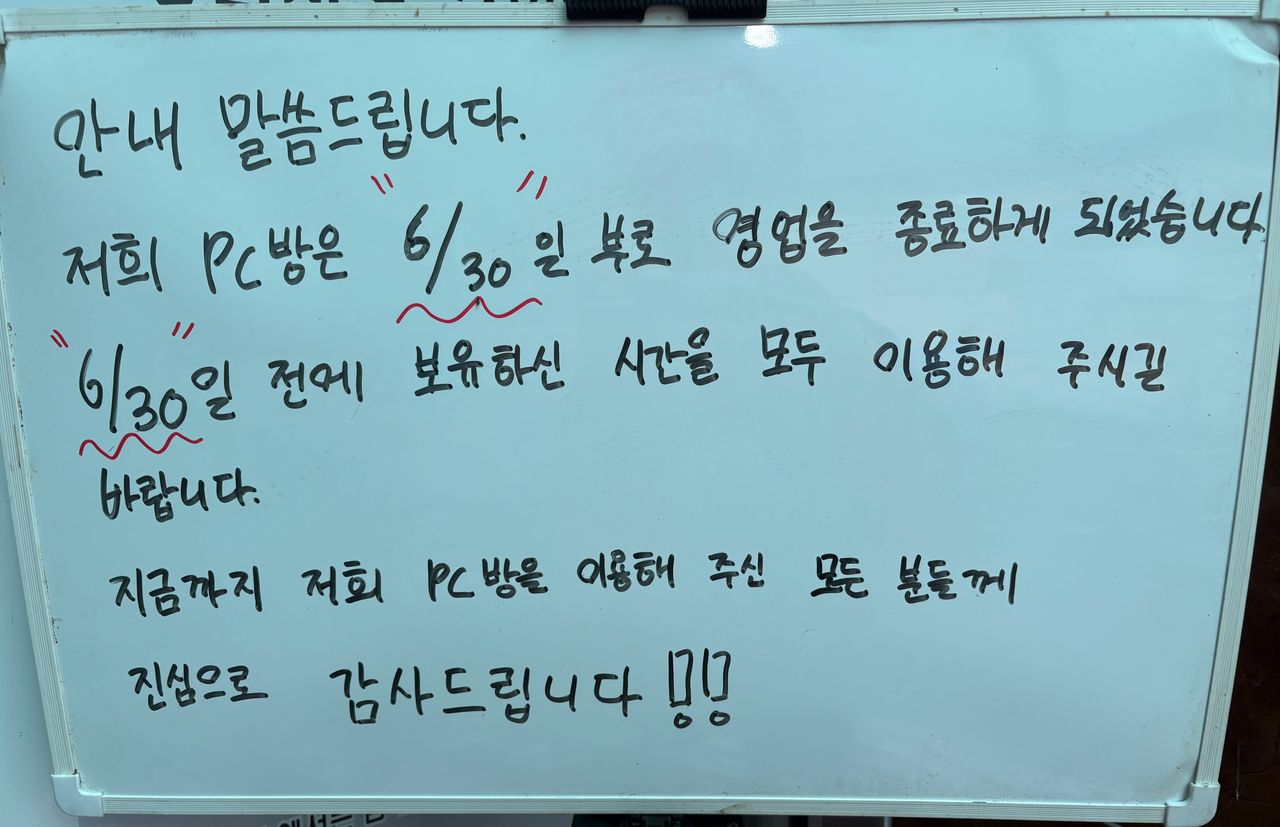 안내 말씀드립니다.
저희 PC방은 "6/30"일 부로 영업을 종료하게 되었습니다
"6/30"일 전에 보유하신 시간을 모두 이용해 주시길
바랍니다.
지금까지 저희 PC방을 이용해 주신 모든 분들께
진심으로 감사드립니다!!